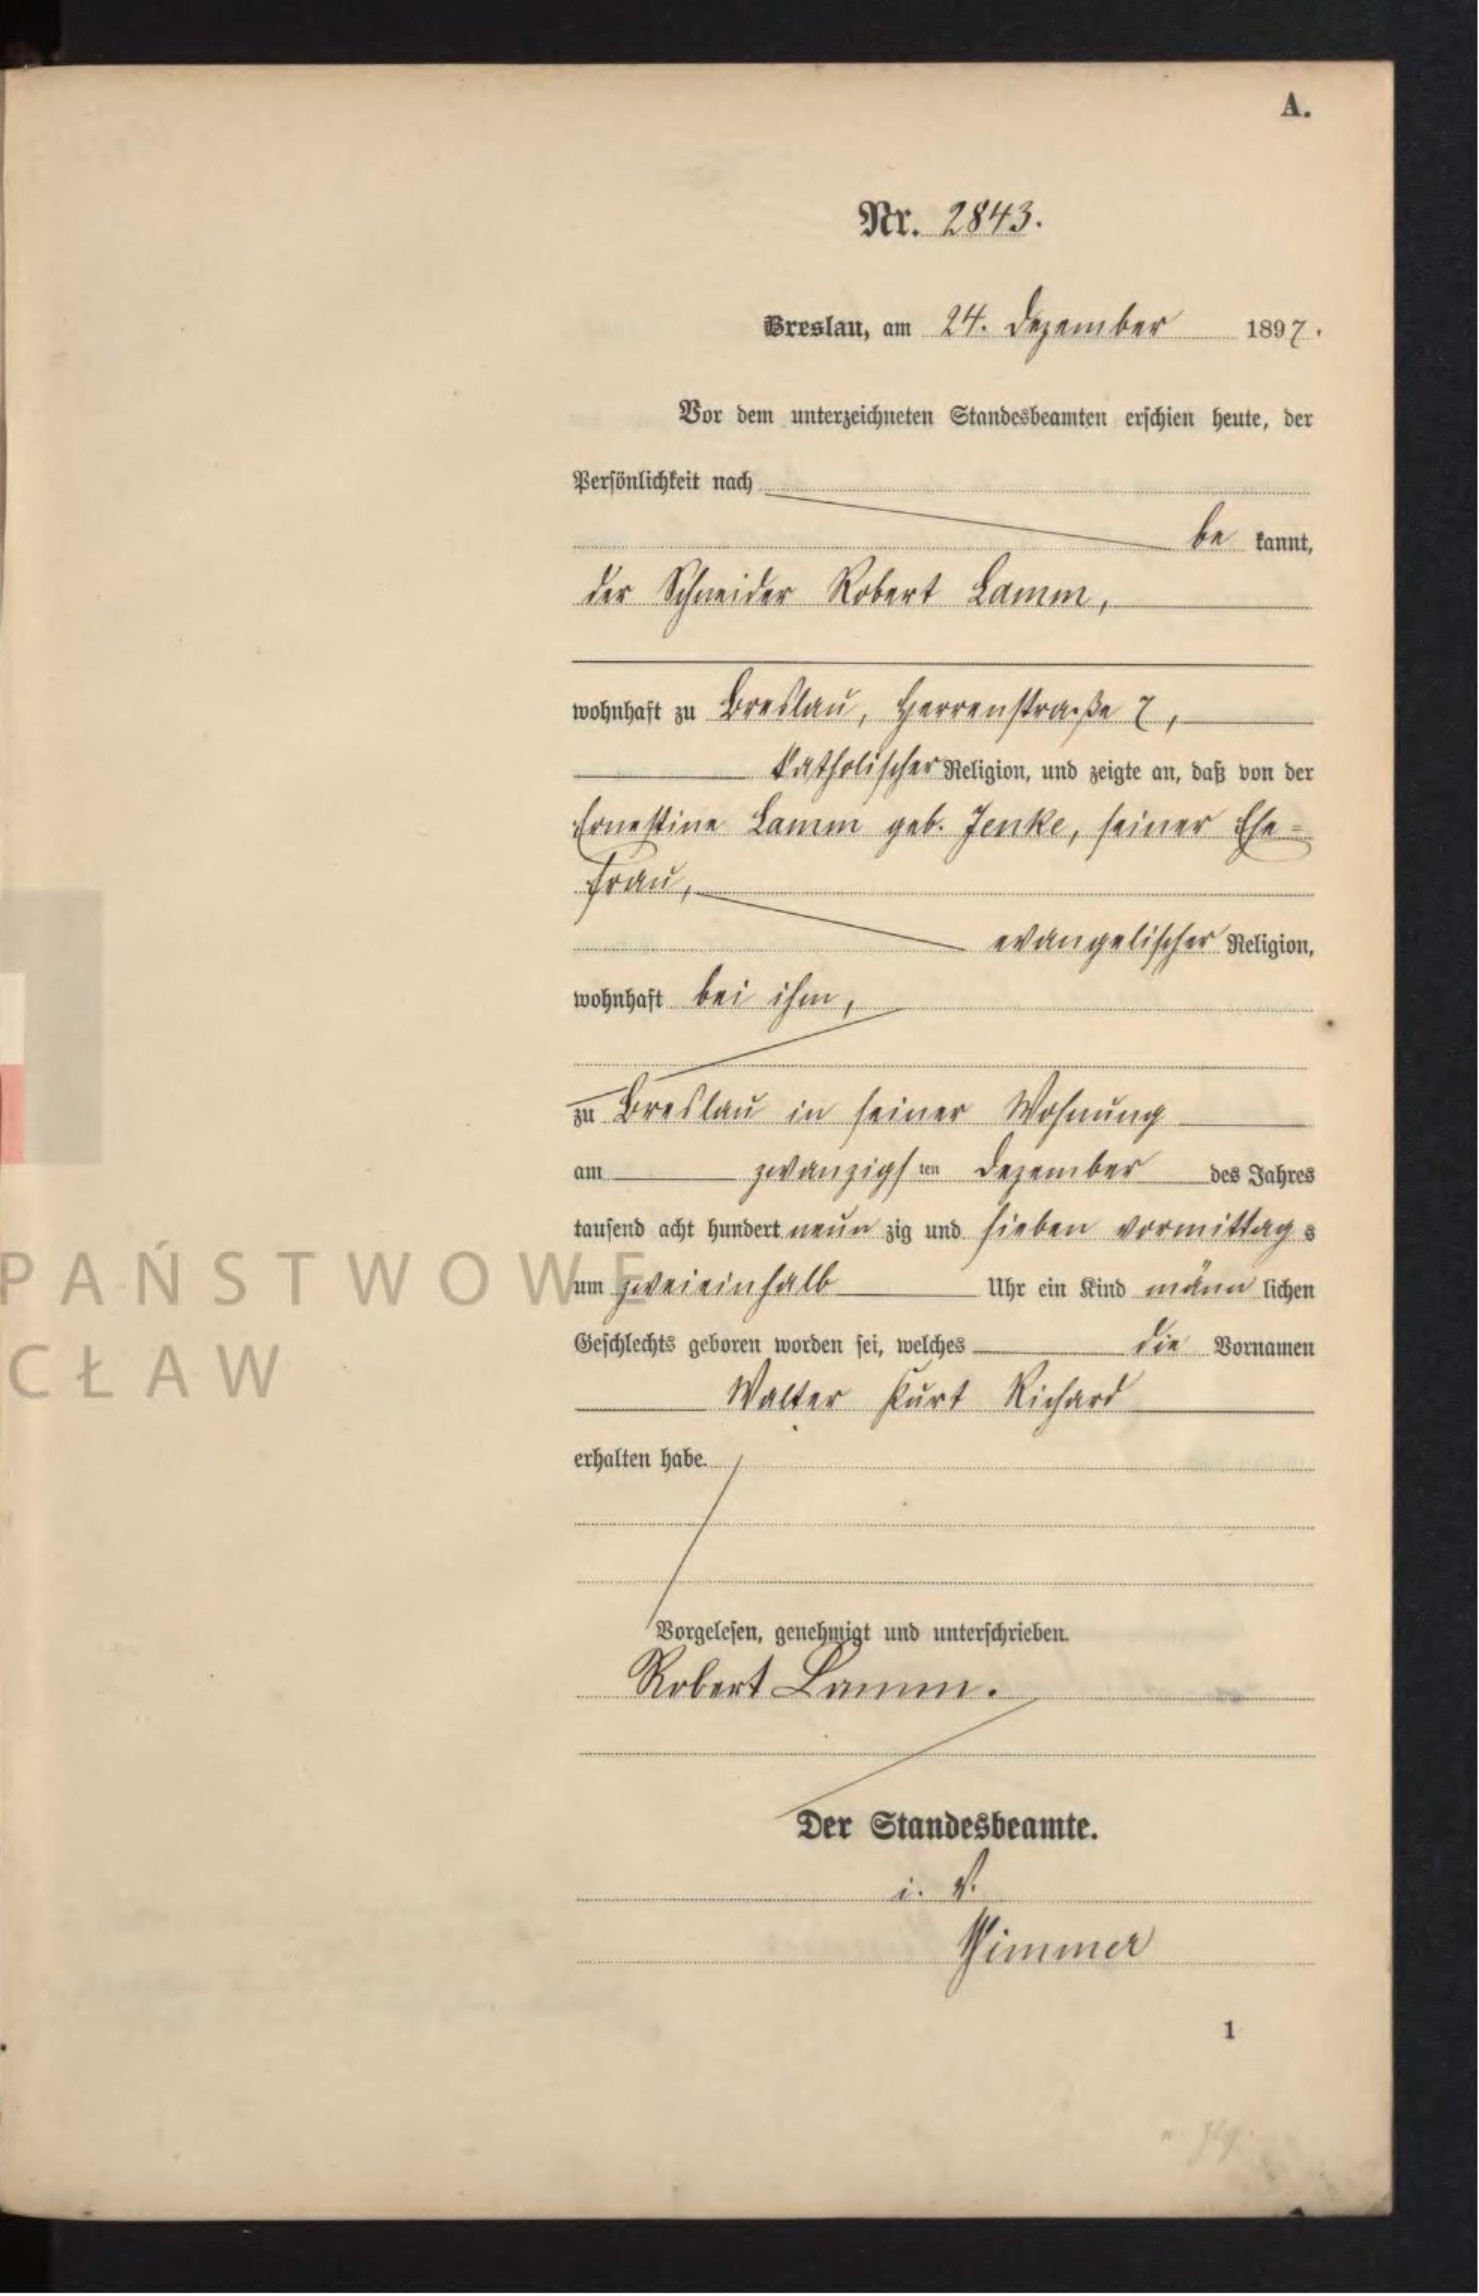 A.
Nr. 2843.
Breslau, am 24. Dezember 1897.
Vor dem unterzeichneten Standesbeamten erschien heute, der
Persönlichkeit nach
be kannt,
der Schneider Robert Lamm,
wohnhaft zu Breslau, Herrenstraße 7,
katholischer Religion, und zeigte an, daß von der
Ernestine Lamm geb. Jenke, seiner Ehe=
frau,
evangelischer Religion,
wohnhaft bei ihm,
zu Breslau in seiner Wohnung
am zwanzigsten Dezember des Jahres
tausend acht hundert neun zig und sieben vormittags
PAŃSTWOWE
um zweieinhalb Uhr ein Kind männ lichen
Geschlechts geboren worden sei, welches die Vornamen
CŁAW
Walter Kurt Richard
erhalten habe.
Vorgelesen, genehmigt und unterschrieben.
Robert Lamm.
Der Standesbeamte.
i. V.
1